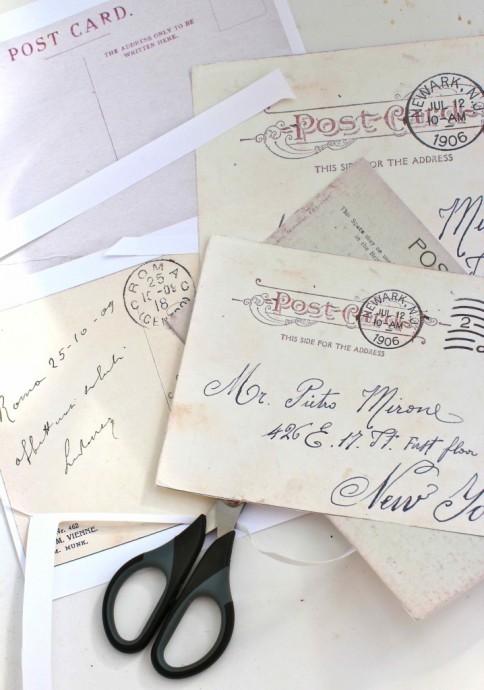 POST CARD.
THE ADDRESS ONLY TO BE
WRITTEN HERE.
NEWARK, N.J.
JUL 12
10-AM
1906
Post Card
THIS SIDE FOR THE ADDRESS
POS
ROMA
25
18
Roma 25-10-09
NEWARK, N.J.
JUL 12
10-AM
1906
2
Post Card
THIS SIDE FOR THE ADDRESS
Mr. Pietro Mirone
426 E. 17. St. First floor
New Yo
No. 462
M. VIENNE.
M. MUNK.